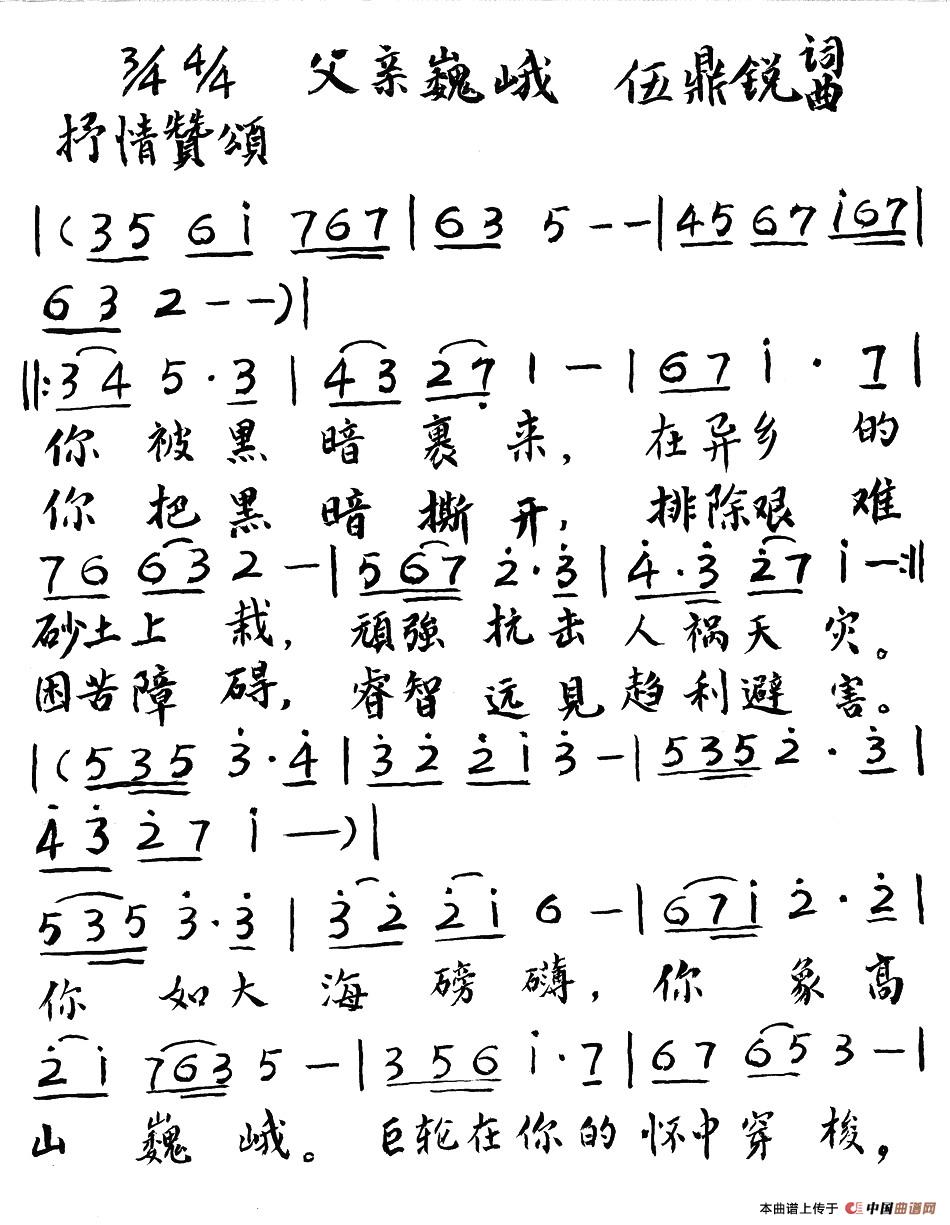 3/4 4/4 父亲巍峨 伍鼎锐 词曲
抒情贊頌
|(35 6i 767|63 5--|45 67 i67|
63 2--)|
||:34 5·3|43 27 1-|67 i·7|
你被黑暗裹来,在异乡的
你把黑暗撕开,排除艰难
76 63 2-|567 2·3|4·3 27 i-:||
砂土上栽,頑強抗击人祸天灾。
困苦障碍,睿智远見趋利避害。
|(535 3·4|32 2i 3-|535 2·3|
43 27 i-)|
535 3·3|32 2i 6-|67i 2·2|
你如大海磅礴,你象高
2i 763 5-|356 i·7|67 65 3-|
山巍峨。巨轮在你的怀中穿梭,
本曲谱上传于 中国曲谱网